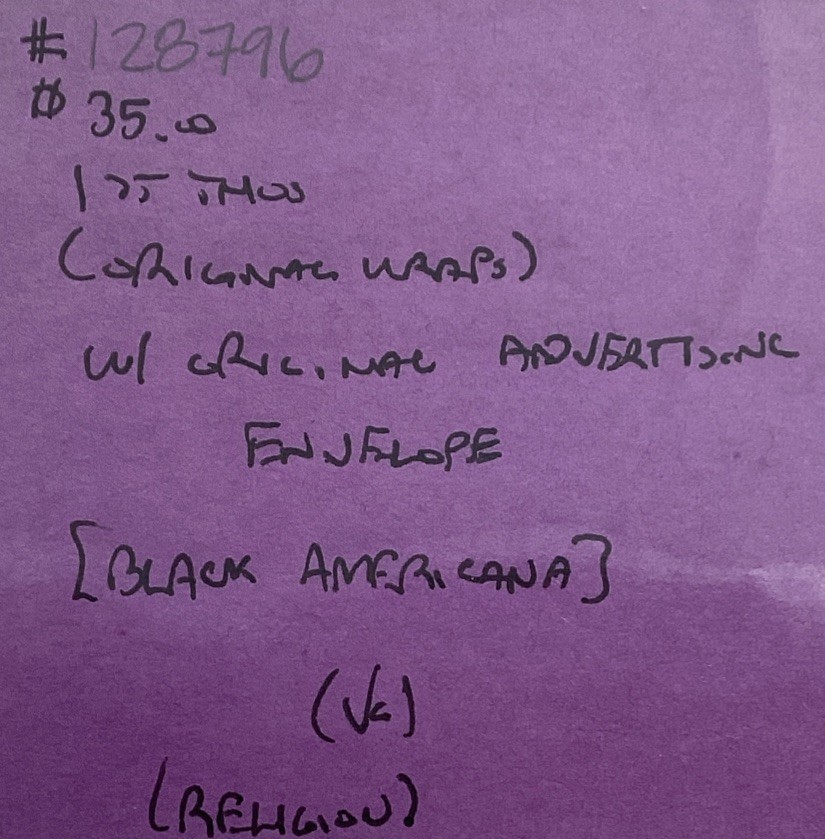 # 128796
$ 35.00
1ST THUS
(ORIGINAL WRAPS)
W/ ORIGINAL ADVERTISING
ENVELOPE
[BLACK AMERICANA]
(VG)
(RELIGION)